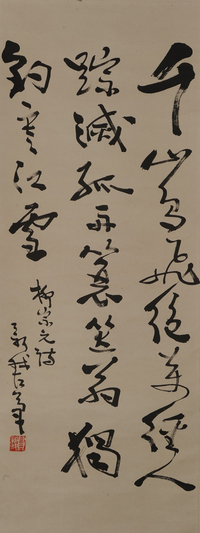 千山鳥飛絶萬徑人
踪滅孤舟簑笠翁獨
釣寒江雪
柳宗元詩